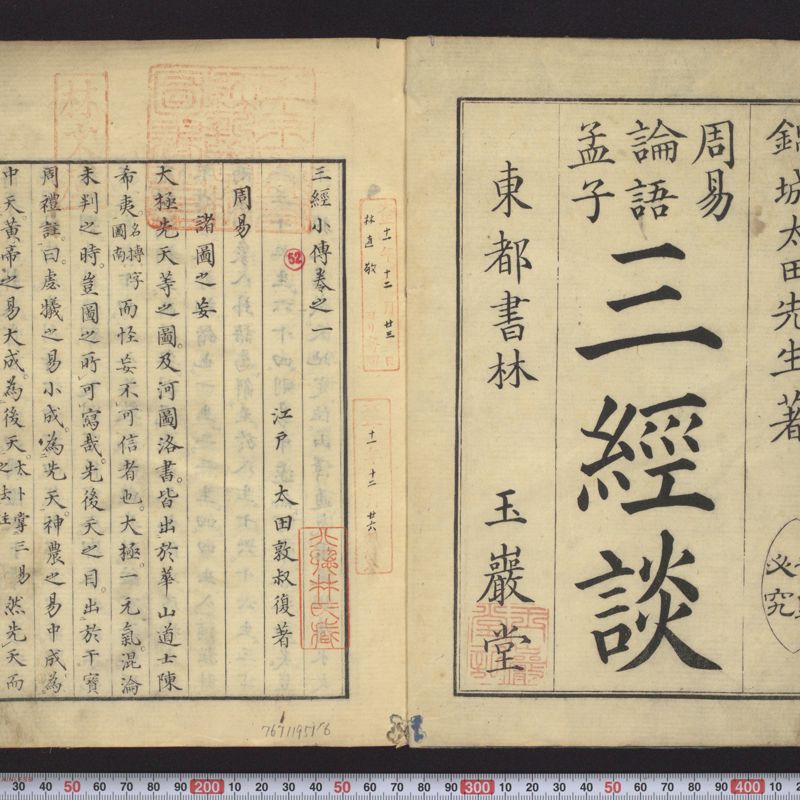 錦城太田先生著
周易
論語
孟子
三經談
東都書林 玉巖堂
必究
三經小傳卷之一
江戸 太田敦叔復著
周易
諸圖之妄
大極先天等之圖。及河圖洛書。皆出於華山道士陳
希夷名摶字圖南而怪妄不可信者也。大極一元氣。混淪
未判之時。豈圖之所可寫哉。先後天之目。出於干寶
周禮註。曰。虙犧之易小成。為先天。神農之易中成。為
中天。黃帝之易大成。為後天。太卜掌三易之法註然先天而
52
十一 十二 廿三
林直敬
十一 十二 廿六
7671195176
30 40 50 60 70 80 90 200 10 20 30 40 50 60 70 80 90 300 10 20 30 40 50 60 70 80 90 400 10